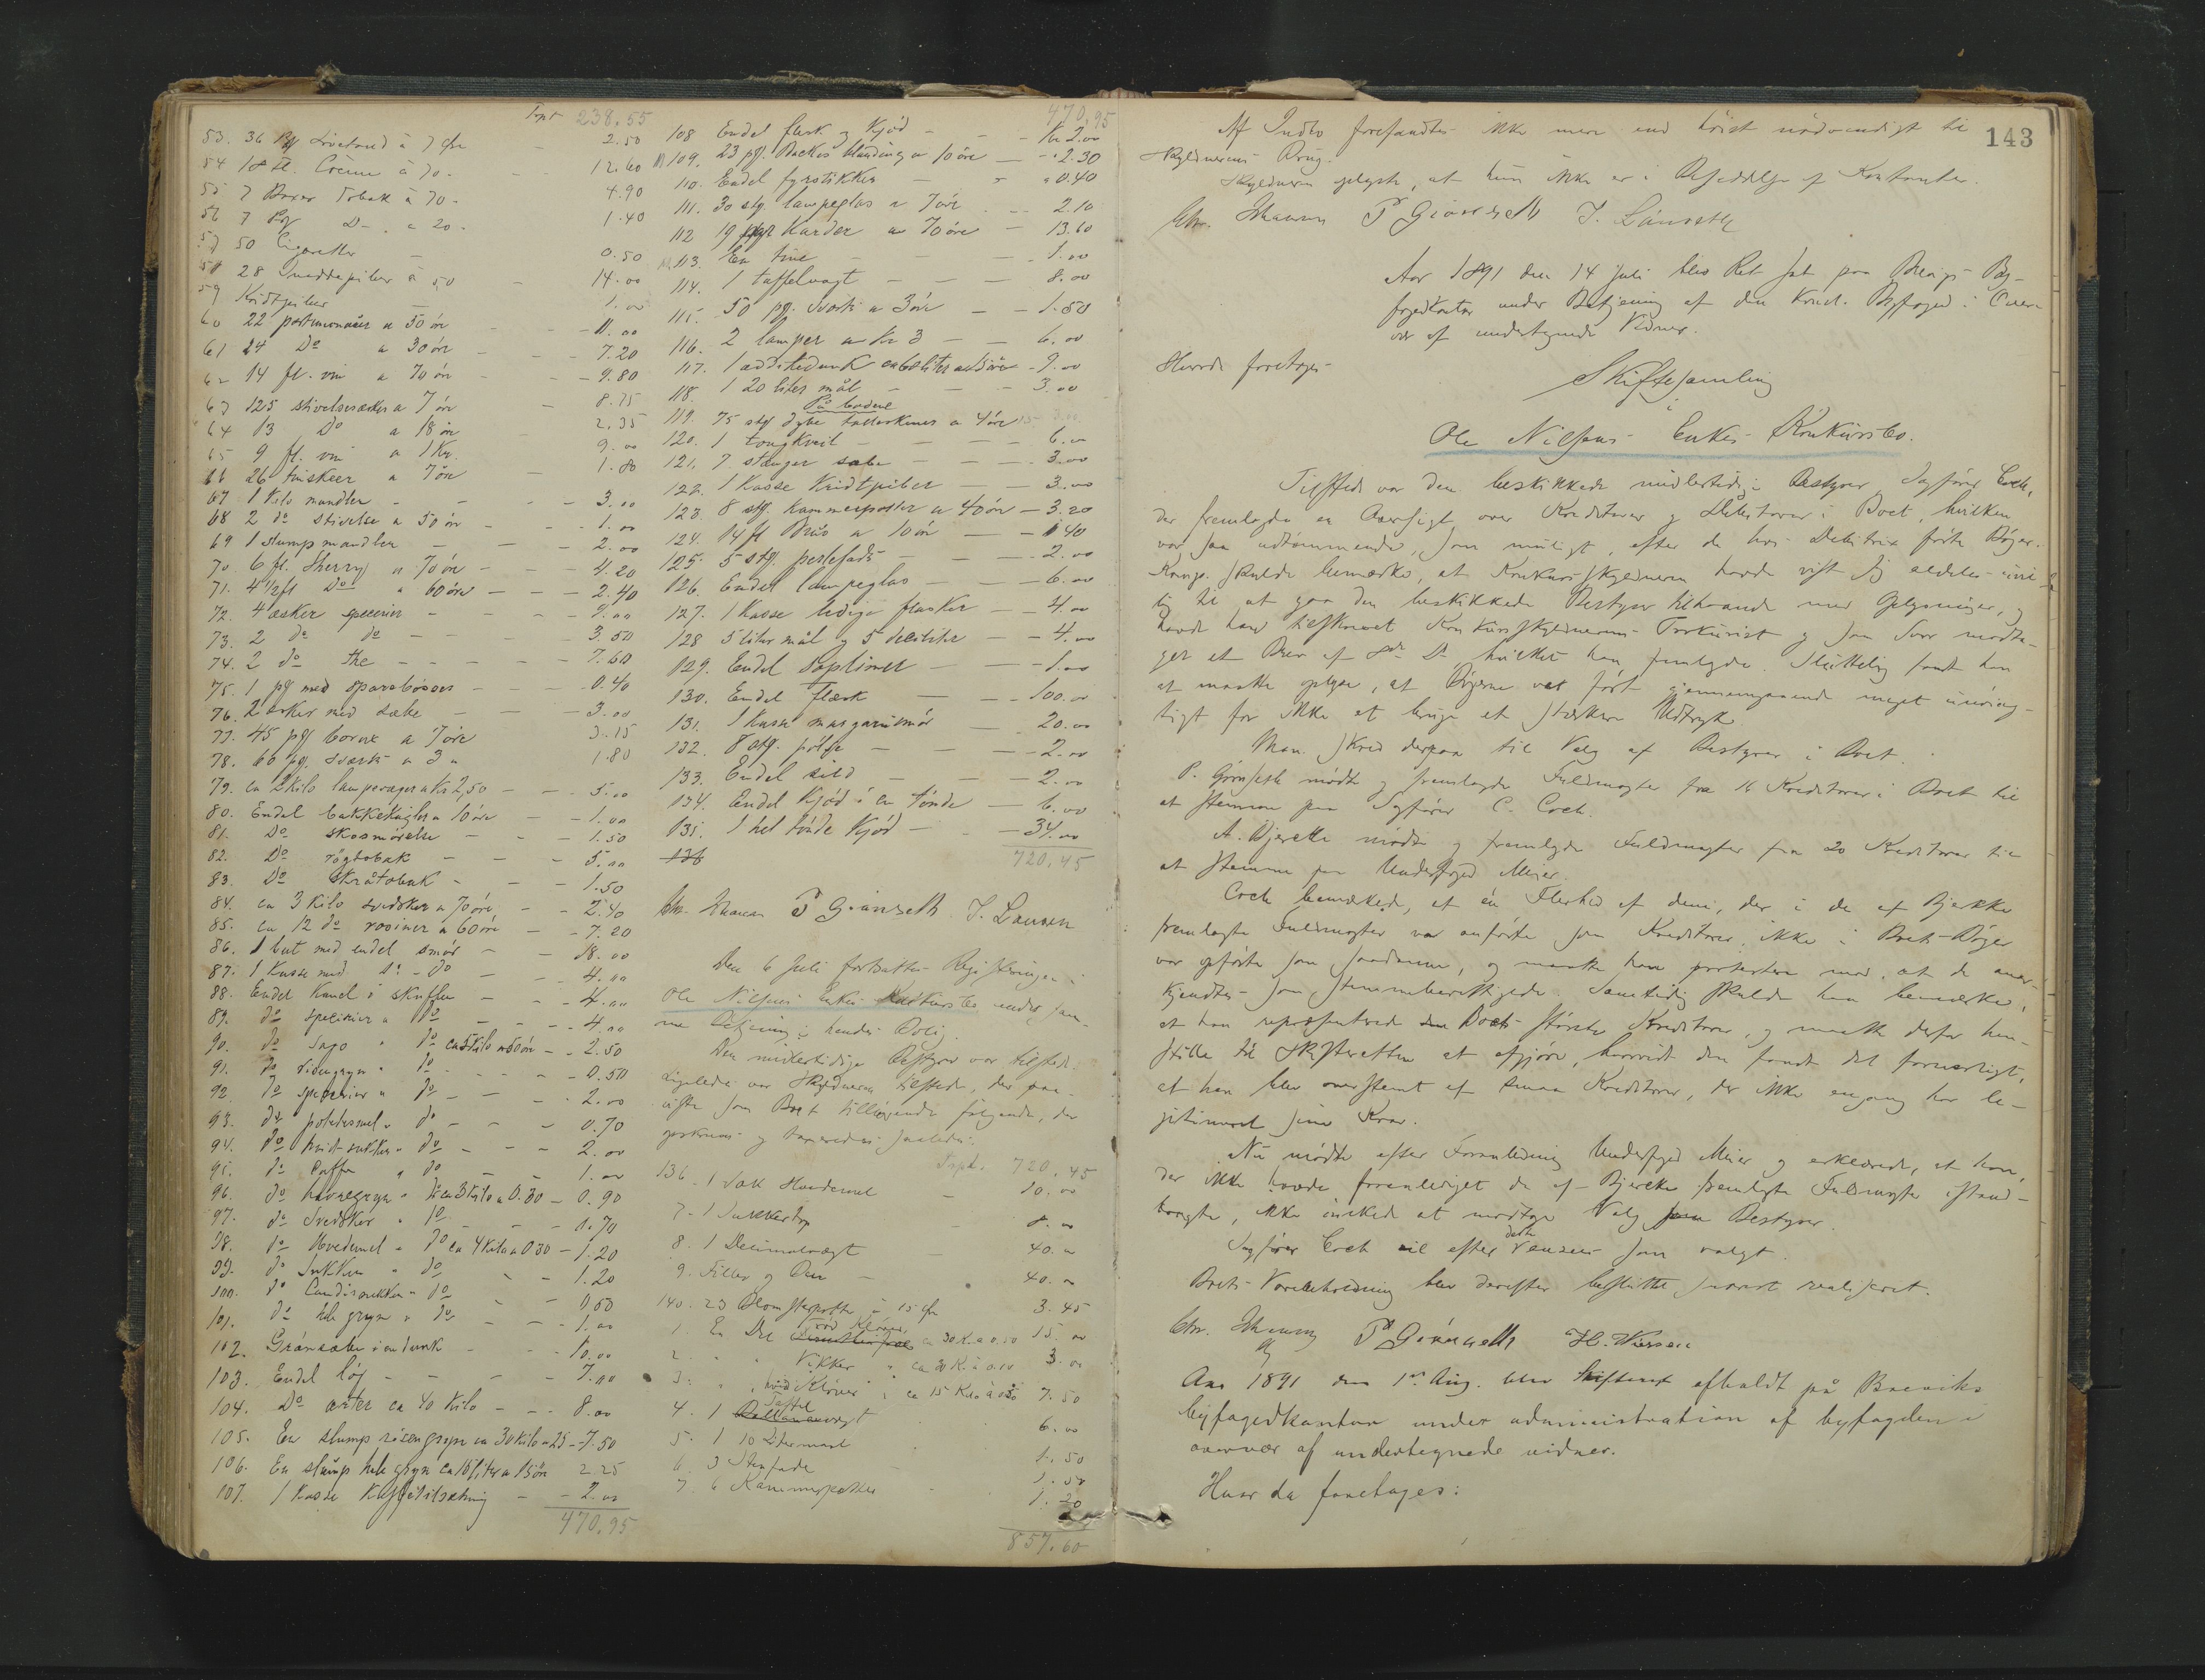 Trpt 238.55
53. 36 á 7 Øre - 2.50
54 18 Fl. Créme á 70. - 12.60
55 7 Boxer Tobak á 70 - 4.90
56 7 D- á 20. 1.40
57 50 Cigaretter - 0.50
58 28 Snaddepiber á 50 - 14.00
59 Kridtpiber - 1.00
60 22 portmonnäer a 50 öre - 11.00
61 24 Do a 30 öre - 7.20
62 14 fl. vin a 70 öre - 9.80
63 125 stivelsesæsker a 7 öre - 8.75
64 13 Do a 18 öre 2.35
65 9 fl. vin a 1 Kr. 9.00
66 26 tinskeer a 7 öre - 1.80
67. 1 Kilo mandler - - - 3.00
68 2 do stivelse a 50 öre - - 1.00
69 1 slump mandler - - - 2.00
70. 6 fl. Sherry a 70 öre - - 4.20
71. 4 1/2 fl Do a 60 öre - - - 2.40
72. 4 æsker specerier - - - 4.00
73. 2 do do - - - - 3.50
74. 2 do the - - - - - 7.60
75. 1 pg med sparebösser - - - 0.40
76. 2 æsker med sæbe - - - 3.00
77. 45 pg borax a 7 öre 3.15
78. 60 pg. sværte a 3 " 1.80
79. ca 2 kilo lampevæger a Kr 2,50 - - 5.00
80. Endel bakkekugler a 10 öre - - 1.00
81. Do skosmörelse - - 1.50
82. Do rögtobak - - - 5.00
83. Do skråtobak - - - 1.50
84. ca 3 kilo svedsker a 70 öre - - 2.40
85. ca 12 do rosiner a 60 öre - - 7.20
86. 1 but med endel smör - - 18.00
87. 1 Kasse med do - do - - 4.00
88. Endel Kanel i skuffen - - - 4.00
89. do specerier " do - - - - 4.00
90. do Sago " do ca 5 Kilo a 50 öre - - 2.50
91. do risengryn " do - - - - 0.50
92. do specerier " do - - - 2.00
93. do potetesmel " do - - - 0.70
94. do hvidt sukker " do - - - 2.00
95. do Caffe " do - - 1.00
96. do havregryn " do ca 3 Kilo a 0.30 - 0.90
97. do Svedsker " do - - - 0.70
98. do Hvedemel " do ca 4 Kilo a 0.30 - 1.20
99. do Sukker " do - - 1.20
100. do Candissukker " do - - 0.50
101. do hele gryn " do - - - 1.00
102. Grönsæbe i en dunk - - - 10.00
103. Endel löj - - - - 7.00
104. Do erter ca 40 Kilo - - - 8.00
105. En slump risengryn ca 30 Kilo a 25 - 7.50
106. En slump hele gryn ca 15 liter a 15 öre 2.25
107. 1 Kasse Kaffetilsætning - - 2.00
470.95
470.95
108 Endel flesk og Kjød - - - Kr 2.00
109. 23 pg. Backes blanding a 10 öre - - 2.30
110. Endel fyrstikker - - " 0.40
111. 30 stg. lampeglas a 7 öre - - 2.10
112 19 Karder a 70 öre - 13.60
113. En tine - - - 1.00
114. 1 taffelvægt - - - 8.00
115. 50 pg. Sværte a 3 öre - - 1.50
116. 2 lamper a Kr 3 - - 6.00
117. 1 eddikedunk ca 60 liter a 15 öre - 9.00
118. 1 20 liter mål - - - 3.00
På boden
119. 75 stg dybe tallerkener a 4 öre 3.00
120. 1 tougkveil - - - - 6.00
121. 7 stænger sæbe - - - 3.00
122. 1 Kasse Kridtpiber - - 3.00
123. 8 stg. Kammerpotter a 40 öre - 3.20
124. 14 fl Brus a 10 öre - - 1.40
125. 5 stg. - - - 2.00
126. Endel lampeglas - - - 6.00
127. 1 Kasse ledige flasker - - 4.00
128 5 liter mål og 5 deciliter - - 4.00
129. Endel - - - 1.00
130. Endel Flæsk - - - 100.00
131. 1 Kasse margarinsmör - 20.00
132. 8 stg. pölse - - - 2.00
133. Endel sild - - - 2.00
134. Endel Kjöd i en tönde - 6.00
135. 1 hel tönde Kjöd - - 34.00
136 720.45
Chr. Johansen P Giønseth J. Larsen
Den 6 Juli fortsattes Registreringen i
Ole Nilsens Enkes Konkursbo under sam-
me Betjening i hendes Bolig.
Den midlertidige Bestyrer var tilstede.
Ligeledes var Skyldneren tilstede, der paa-
viste som Boet tilhørende følgende, der
opskreves og taxeredes saaledes:
Trpt. 720.45
136. 1 Sæk Hvedemel - 10.00
7. 1 Sukkertop - 8.00
8. 1 Decimalvægt - 40.00
9. Filler og Ben - 40.00
140. 23 Blomsterpotter á 15 Øre 3.45
1. En Del rød Kløver ca 30 K. a 0.50 15.00
2. " " Vikker " ca 30 K. á 0.10 3.00
3. " " hvid Kløver " ca 15 Kilo á 0.50 7.50
4. 1 Taffelvægt 6.00
5. 1 10 Litermaal 1.50
6. 3 Stenfade 1.00
7. 6 Kammerpotter 1.20
857.60
143
Af Indbo forefandtes ikke mere end høist nødvendigt til
Skyldnerens Brug.
Skyldneren oplyste, at hun ikke er i Besiddelse af Kontanter.
Chr. Johansen P Giønseth J. Larsen
Aar 1891 den 14 Juli blev Ret sat paa Brevigs By-
fogedkontor under Betjening af den Konst. Byfoged i Over-
vær af undertegnede Vidner.
Hvorda foretoges
Skiftesamling
i
Ole Nilsens Enkes Konkursbo.
Tilstede var den beskikkede midlertidige Bestyrer Sagfører Coch,
der fremlagde en Oversigt over Kreditorer og Debitorer i Boet, hvilken
var saa udtømmende, som muligt, efter de hos Debitrix førte Bøger.
Komp. skulde bemærke, at Konkursskyldneren havde vist sig aldeles uvil-
lig til at gaa den beskikkede Bestyrer tilhaande med Oplysninger, og
havde han tilskrevet Konkursskyldnerens Prokurist og som Svar modta-
get et Brev af 8de Ds hvilket han fremlagde. Sluttelig fandt han
at maatte oplyse, at Bøgerne var ført gjennemgaaende meget unøiag-
tigt for ikke at bruge et stærkere Udtryk.
Man skred derpaa til Valg af Bestyrer i Boet.
P. Giønseth mødte og fremlagde Fuldmagter fra 16 Kreditorer i Boet til
at stemme paa Sagfører C. Coch.
A. Bjercke mødte og fremlagde Fuldmagter fra 20 Kreditorer til
at stemme paa Underfoged Meier.
Coch bemærkede, at en Flerhed af dem, der i de af Bjercke
fremlagte Fuldmagter var anførte som Kreditorer, ikke i Boets Bøger
var opførte som saadanne, og maatte han protestere mod, at de aner-
kjendtes som stemmeberettigede. Samtidig skulde han bemærke,
at han repræsenterede Boets største Kreditorer, og maatte derfor hen-
stille til Skifteretten at afgjøre, hvorvidt den fandt det forsvarligt,
at han blev overstemt af smaa Kreditorer, der ikke engang har le-
gitimeret sine Krav.
Nu mødte efter Foranledning Underfoged Meier og erklærede, at han,
der ikke havde foranlediget de af Bjercke fremlagte Fuldmagter istand-
bragte, ikke ønskede at modtage Valg som Bestyrer.
Sagfører Coch vil efter dette ansees som valgt.
Boets Varebeholdning blev derefter besluttet snarest realiseret.
Chr. Johansen P Giønseth H. Nissen
Aar 1891 den 1ste Aug. blev Skifteret afholdt på Breviks
byfogedkontor under administration af byfogden i
overvær af undertegnede vidner.
Hvor da foretoges: